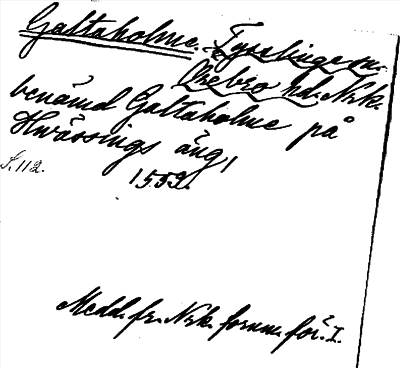 Galtaholme. Tysslinge sn.
Örebro hd. Nrk.
benämd Galtaholme på
Hwässings äng,
S. 112. 1552.
Medd. fr. Nrk. fornm. för. I.